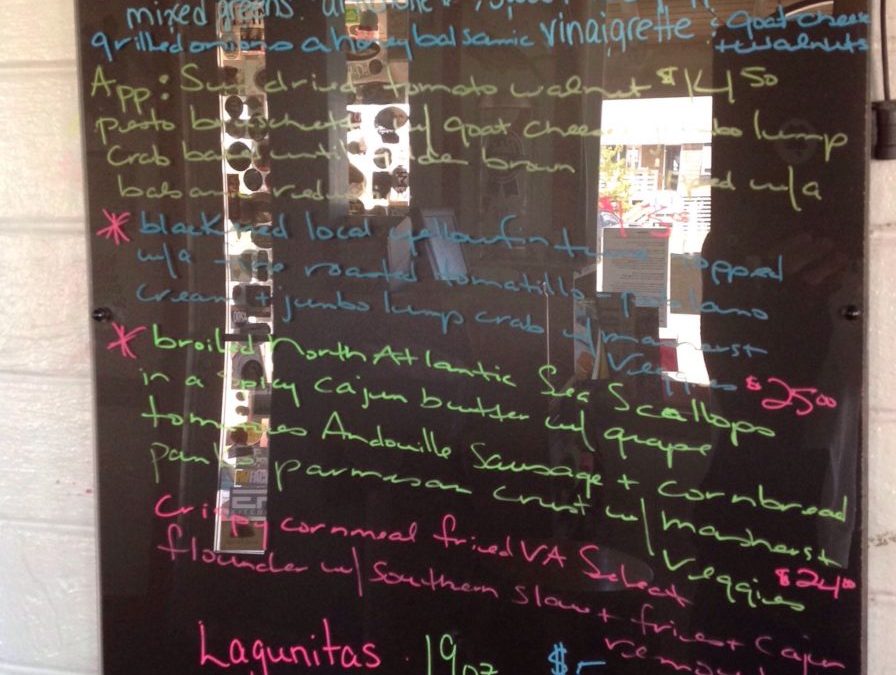 mixed greens
grilled onions a honey balsamic vinaigrette goat cheese
+ walnuts
App: Sun dried tomato walnut $14 50
pesto bruschetta w/ goat cheese jumbo lump
crab until brown
w/a
* blackened local yellowfin tuna topped
w/a roasted tomatillo - poblano
cream + jumbo lump crab w/
veggies $25 00
* broiled North Atlantic Sea Scallops
in a spicy cajun butter w/ grape
tomatoes Andouille Sausage + cornbread
panko parmesan crust w/
veggies $24 00
Crispy cornmeal fried VA Select
flounder w/ Southern Slaw + fries + Cajun
remoulade
Lagunitas 19oz $5